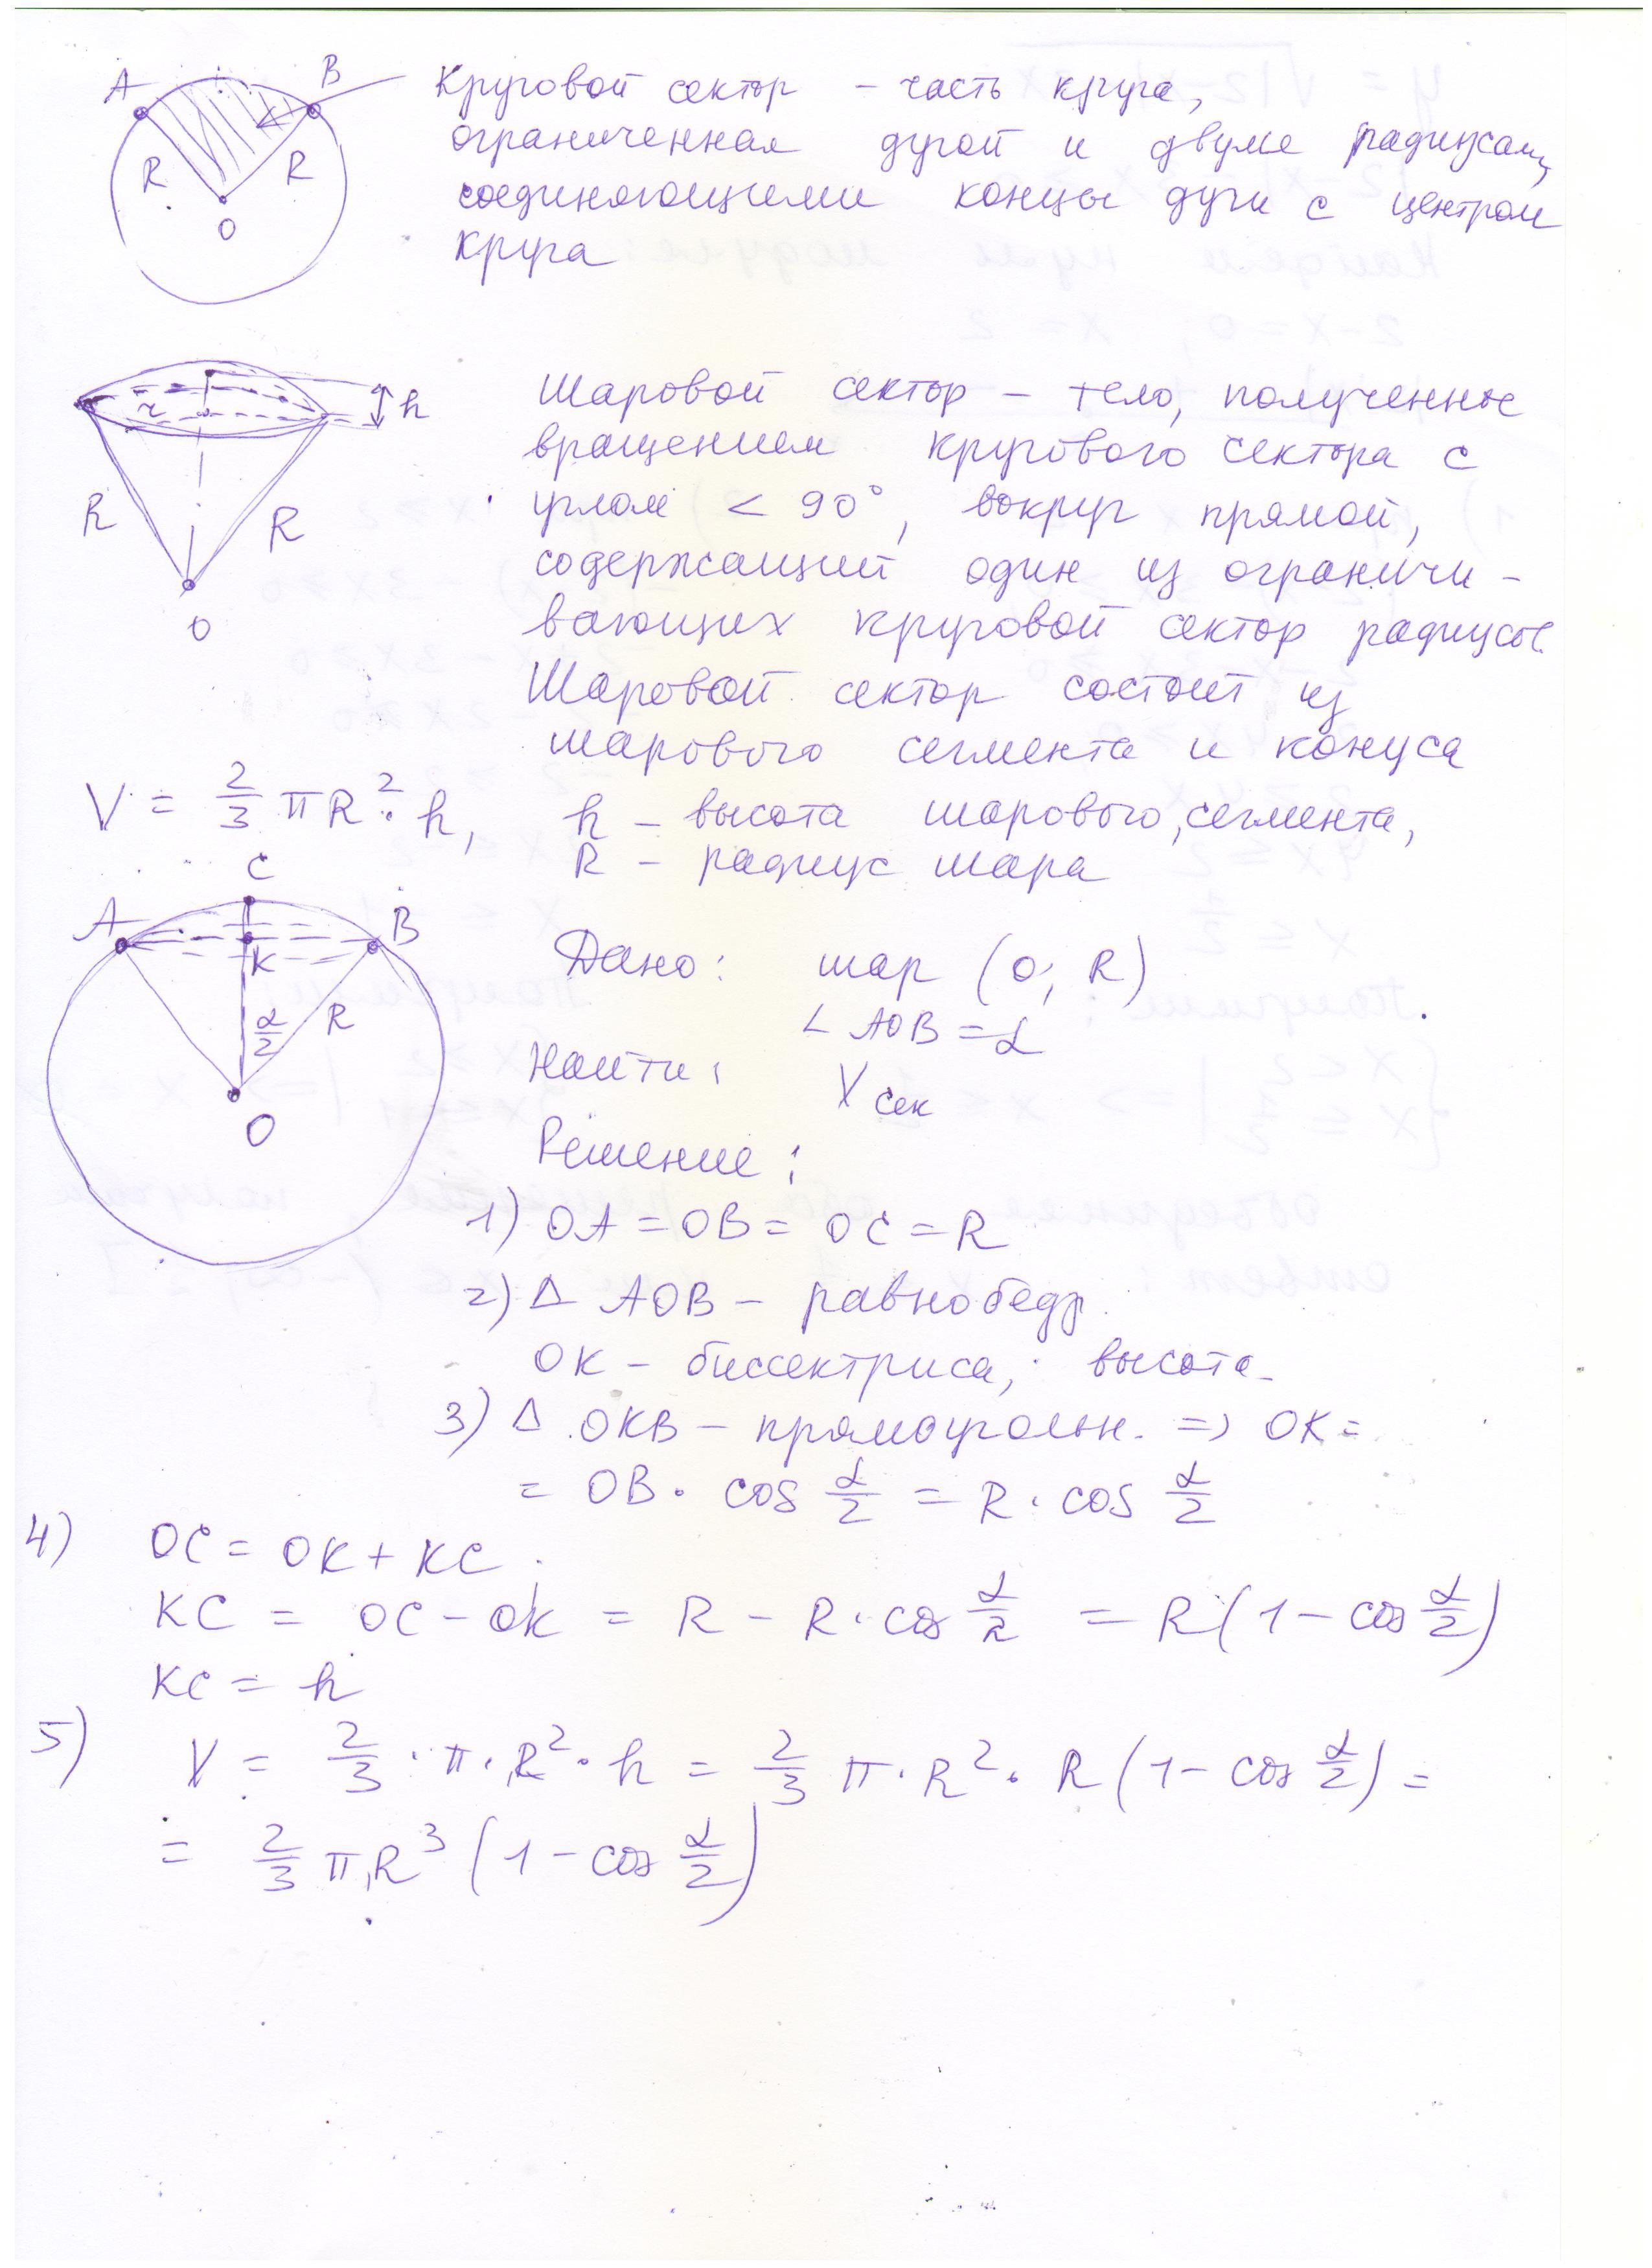 A B Круговой сектор - часть круга,
ограниченная дугой и двумя радиусами,
R R соединяющими концы дуги с центром
O круга
h Шаровой сектор - тело, полученное
r вращением кругового сектора с
R R углом < 90°, вокруг прямой,
содержащий один из ограничи-
O вающих круговой сектор радиусов.
Шаровой сектор состоит из
шарового сегмента и конуса
V = 2/3 πR² · h, h - высота шарового сегмента,
R - радиус шара
C
A B
K Дано: шар (O; R)
α/2 R ∠ AOB = α
Найти: Vсек
O
Решение:
1) OA = OB = OC = R
2) Δ AOB - равнобедр.
OK - биссектриса, высота.
3) Δ OKB - прямоугольн. => OK =
= OB · cos α/2 = R · cos α/2
4) OC = OK + KC
KC = OC - OK = R - R · cos α/2 = R(1 - cos α/2)
KC = h
5) V = 2/3 · π · R² · h = 2/3 π · R² · R(1 - cos α/2) =
= 2/3 πR³ (1 - cos α/2)